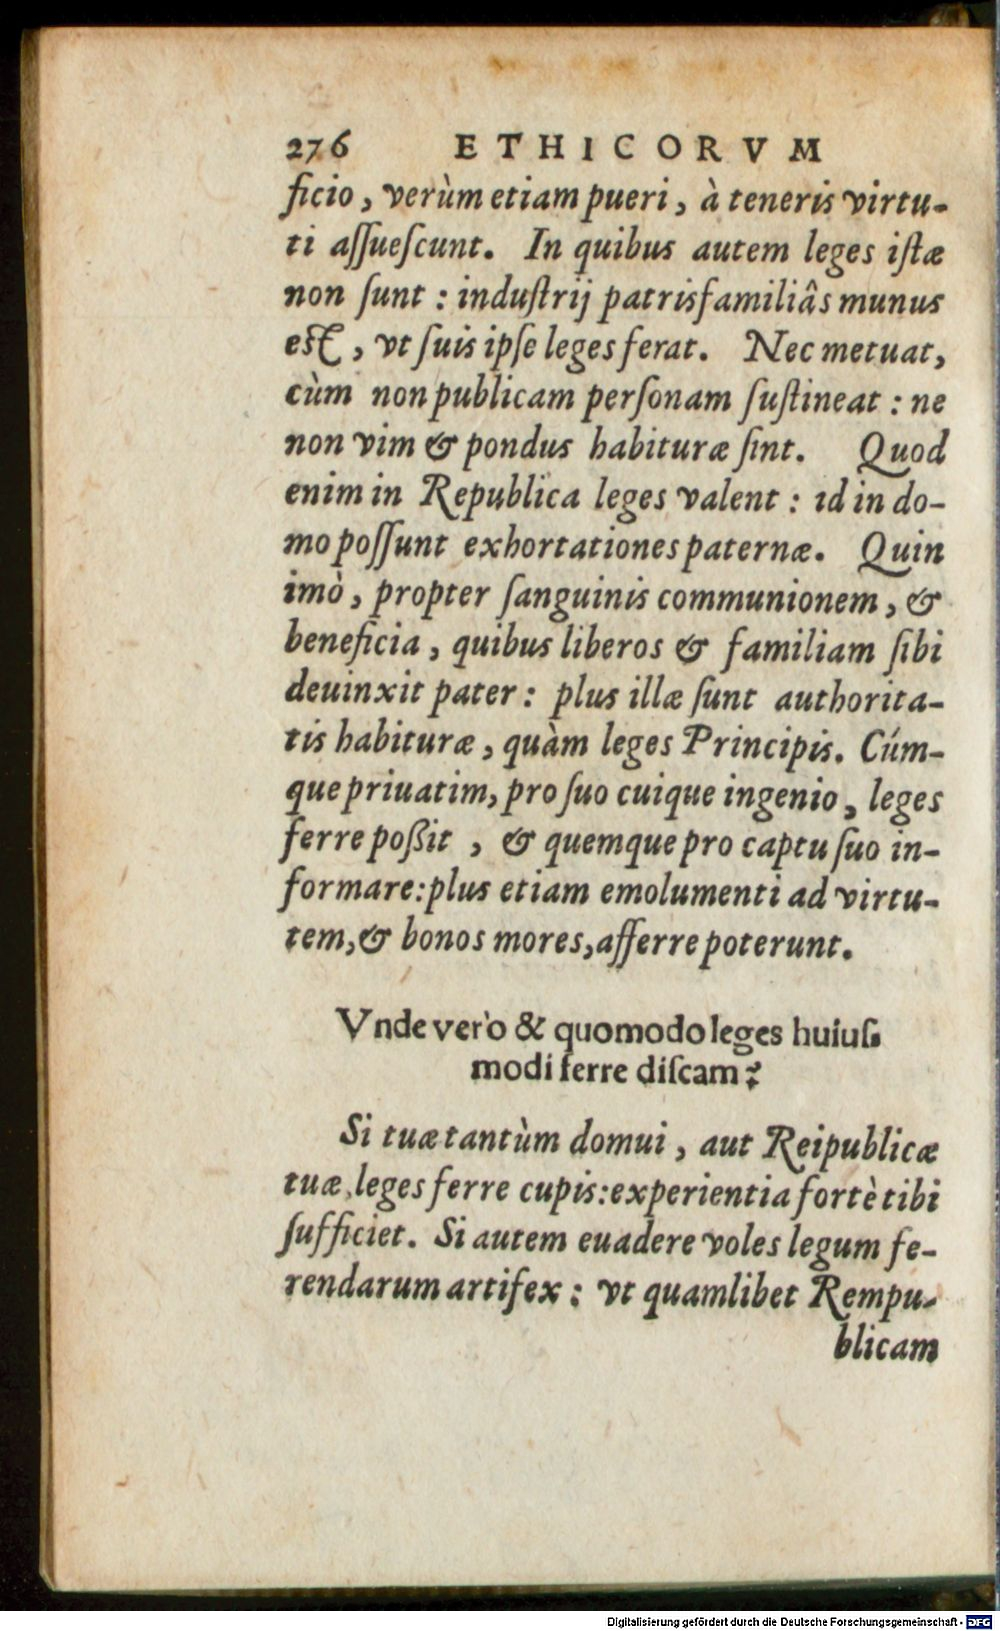 276 ETHICORVM
ficio, verùm etiam pueri, à teneris virtu-
ti aſſueſcunt. In quibus autem leges iſtæ
non ſunt : induſtrij patrisfamiliâs munus
eſt, vt ſuis ipſe leges ferat. Nec metuat,
cùm non publicam perſonam ſuſtineat : ne
non vim & pondus habituræ ſint. Quod
enim in Republica leges valent : id in do-
mo poſſunt exhortationes paternæ. Quin
imò, propter ſanguinis communionem, &
beneficia, quibus liberos & familiam ſibi
deuinxit pater : plus illæ ſunt authorita-
tis habituræ, quàm leges Principis. Cúm-
que priuatim, pro ſuo cuique ingenio, leges
ferre poßit, & quemque pro captu ſuo in-
formare: plus etiam emolumenti ad virtu-
tem, & bonos mores, afferre poterunt.
Vnde verò & quomodo leges huiuſ-
modi ferre diſcam?
Si tuæ tantùm domui, aut Reipublicæ
tuæ leges ferre cupis: experientia fortè tibi
ſufficiet. Si autem euadere voles legum fe-
rendarum artifex : vt quamlibet Rempu-
blicam
Digitalisierung gefördert durch die Deutsche Forschungsgemeinschaft - DFG